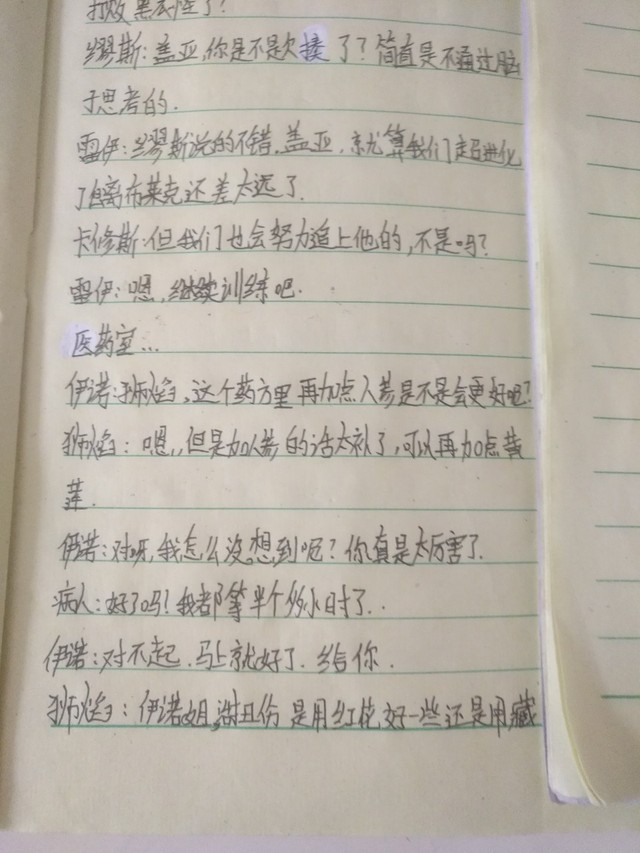 打败黑底怪了?
缪斯:盖亚,你是不是欠揍了?简直是不通过脑
子思考的.
雷伊:缪斯说的不错,盖亚,就算我们超进化
了但离布莱克还差太远了.
卡修斯:但我们也会努力追上他的,不是吗?
雷伊:嗯,继续训练吧.
医药室...
伊诺:狮焰,这个药方里再加点人参是不是会更好呢?
狮焰:嗯,,但是加人参的话太补了,可以再加点黄
莲.
伊诺:对呀,我怎么没想到呢?你真是太厉害了.
病人:好了吗!我都等半个多小时了..
伊诺:对不起.马上就好了.给你.
狮焰:伊诺姐,跌丑伤是用红花好一些还是用藏